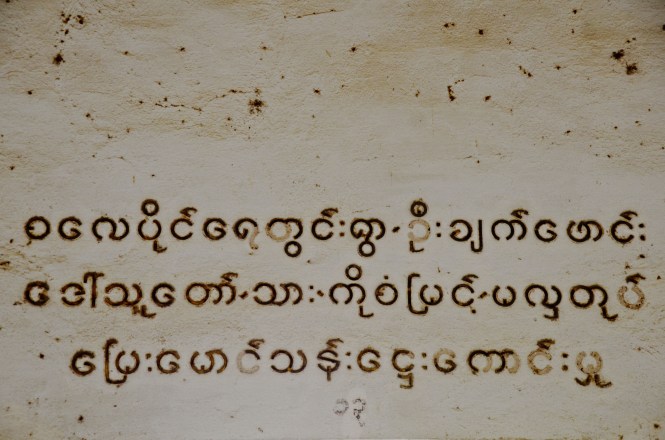 စလေပိုင်ရေတွင်းရွာ-ဦးချက်ဖောင်း
ဒေါ်သူတော်-သား-ကိုစံမြင့်-မလှတုပ်
မြေးမောင်သန်းဌွေးကောင်းမှု
၁၃